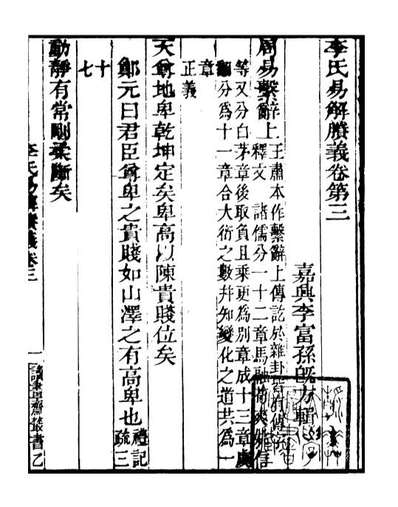 李氏易解賸義卷第三
嘉興李富孫旣方輯
周易繫辭上
王肅本作繫辭上傳訖於雜卦皆有傳字
釋文 諸儒分一十二章馬融荀爽姚信
等又分白茅章後取負且乘更爲別章成十三章虞
翻分爲十一章合大衍之數幷知變化之道共爲一
章
正義
天尊地卑乾坤定矣卑高以陳貴賤位矣
鄭元曰君臣尊卑之貴賤如山澤之有高卑也
禮記
疏三
十
七
動靜有常剛柔斷矣
李氏易解賸義卷三
一
讀畫齋叢書 乙